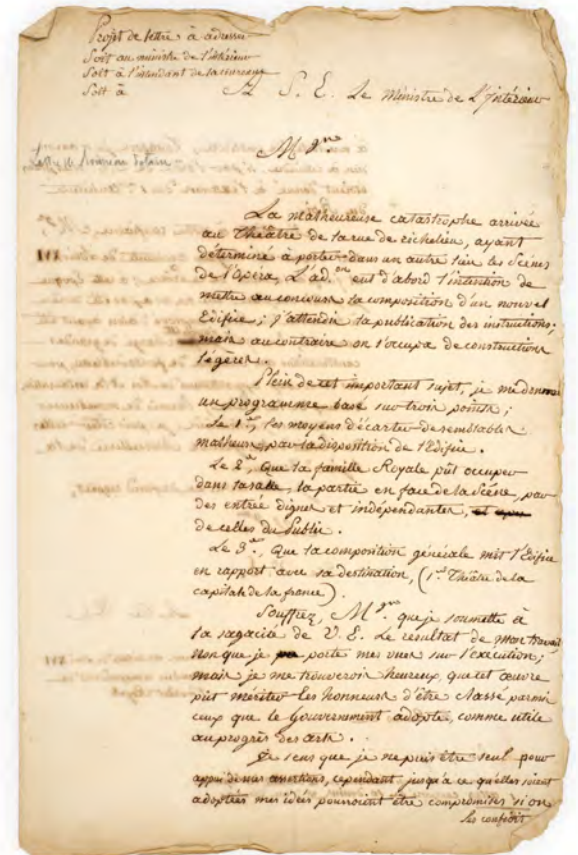 Projet de lettre à adresser
Soit au ministre de l'intérieur
Soit à l'intendant de la
Soit à
A S. E. Le Ministre de L'Intérieur
M.gnr
Lettre de
La malheureuse catastrophe arrivée
au Théâtre de la rue de richelieu, ayant
déterminé à porter dans un autre lieu les Scènes
de l'Opéra, L'ad.on eut d'abord l'intention de
mettre au concours la composition d'un nouvel
Edifice; j'attendis la publication des instructions;
mais au contraire on s'occupa de constructions
légères.
Plein de cet important sujet, je me donnai
un programme basé sur trois points;
Le 1.er, les moyens d'écarter de semblables
malheurs, par la disposition de l'Edifice.
Le 2.e, Que la famille Royale pût occuper
dans la salle, la partie en face de la Scène, par
des entrée dignes et indépendantes,
de celles du Public.
Le 3.e, Que la composition générale mit l'Edifice
en rapport avec sa destination, (1.er Théâtre de la
capitale de la france).
Souffrez, M.gnr que je soumette à
la sagacité de V. E. Le résultat de mon travail
non que je porte mes vues sur l'exécution;
mais je me trouverois heureux, que cet œuvre
pût mériter les honneurs d'être classé parmi
ceux que le Gouvernement adopte, comme utile
au progrès des arts.
Je sens que je ne puis être seul pour
appui de mes assertions, cependant jusqu'à ce qu'elles soient
adoptées mes idées pourroient être compromises si on
les confioit